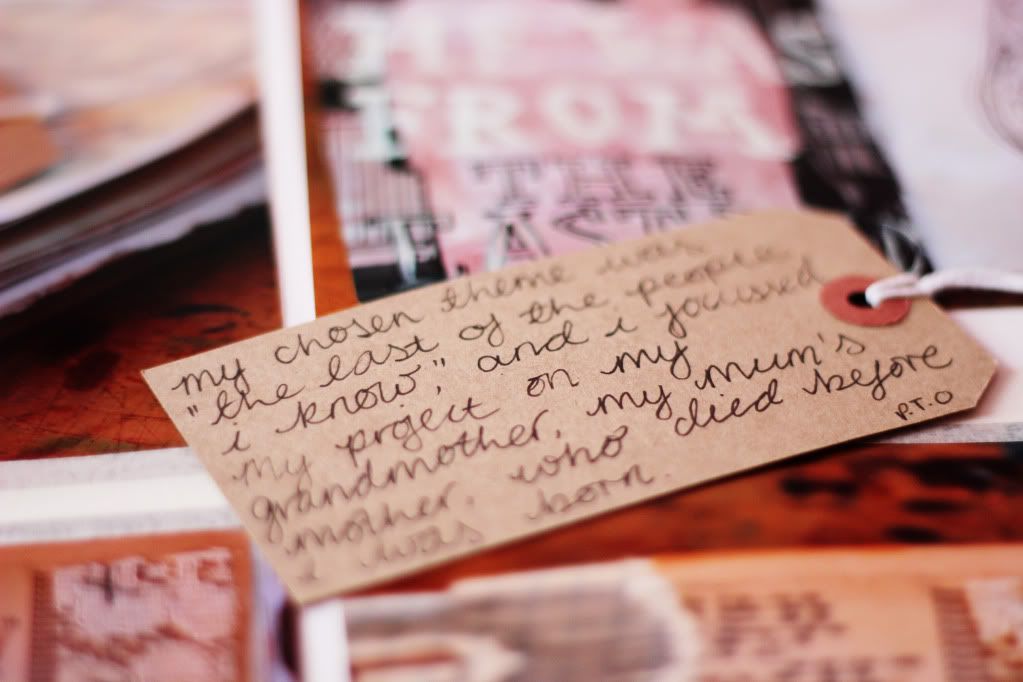 FROM
THE
my chosen theme was
"the last of the people
i know," and i focussed
my project on my
grandmother. my mum's
mother. who died before
i was born.
P.T.O